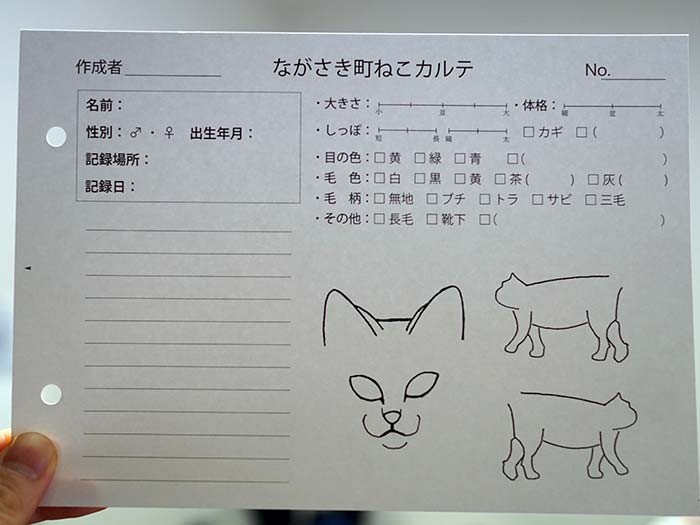 作成者 ながさき町ねこカルテ No.
名前：
性別：♂・♀ 出生年月：
記録場所：
記録日：
・大きさ： 小 並 大 ・体格： 細 並 太
・しっぽ： 短 長 細 太 □カギ □( )
・目の色：□黄 □緑 □青 □( )
・毛　色：□白 □黒 □黄 □茶( ) □灰( )
・毛　柄：□無地 □ブチ □トラ □サビ □三毛
・その他：□長毛 □靴下 □( )